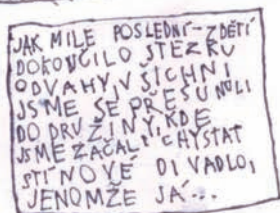 JAK MILE POSLEDNÍ Z DĚTÍ
DOKONČILO STEZKU
ODVAHY, VŠICHNI
JSME SE PŘESUNULI
DO DRUŽINY, KDE
JSME ZAČALI CHYSTAT
STÍNOVÉ DIVADLO,
JENOMŽE JÁ...